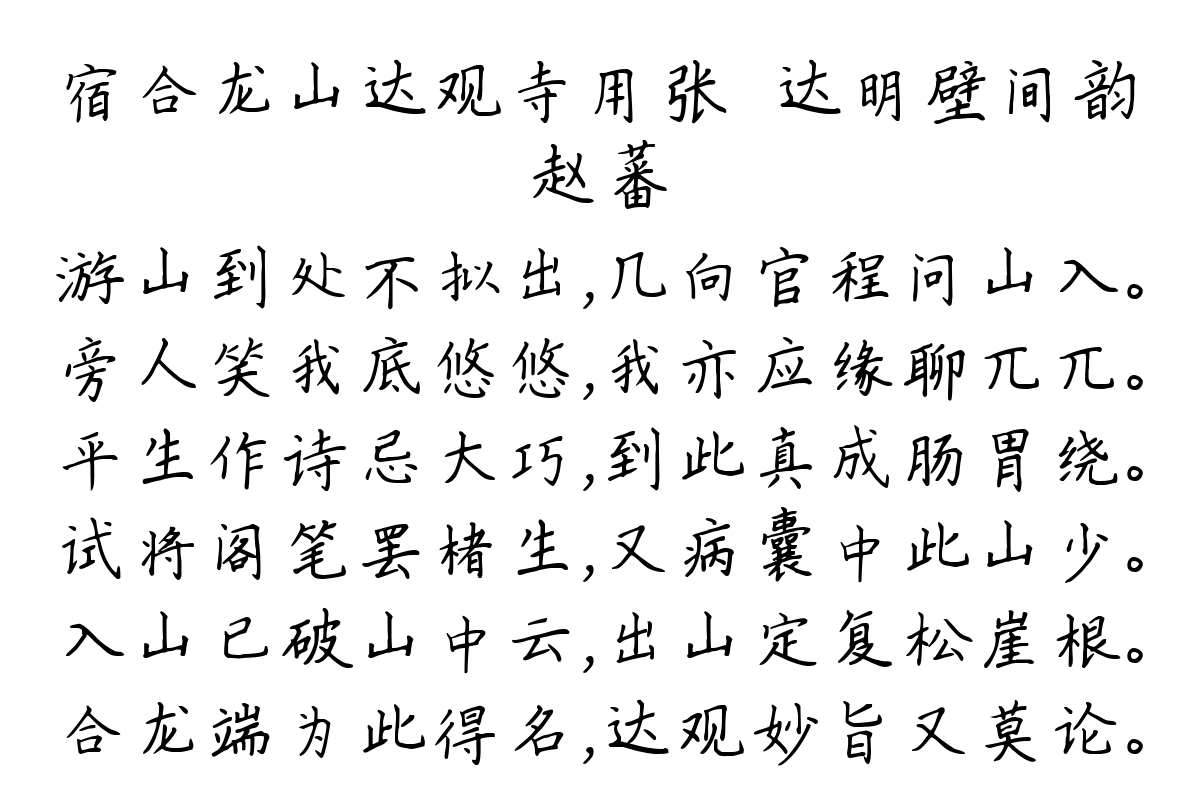 宿合龙山达观寺用张 达明壁间韵
赵蕃
游山到处不拟出,几向官程问山入。
旁人笑我底悠悠,我亦应缘聊兀兀。
平生作诗忌大巧,到此真成肠胃绕。
试将阁笔罢楮生,又病囊中此山少。
入山已破山中云,出山定复松崖根。
合龙端为此得名,达观妙旨又莫论。